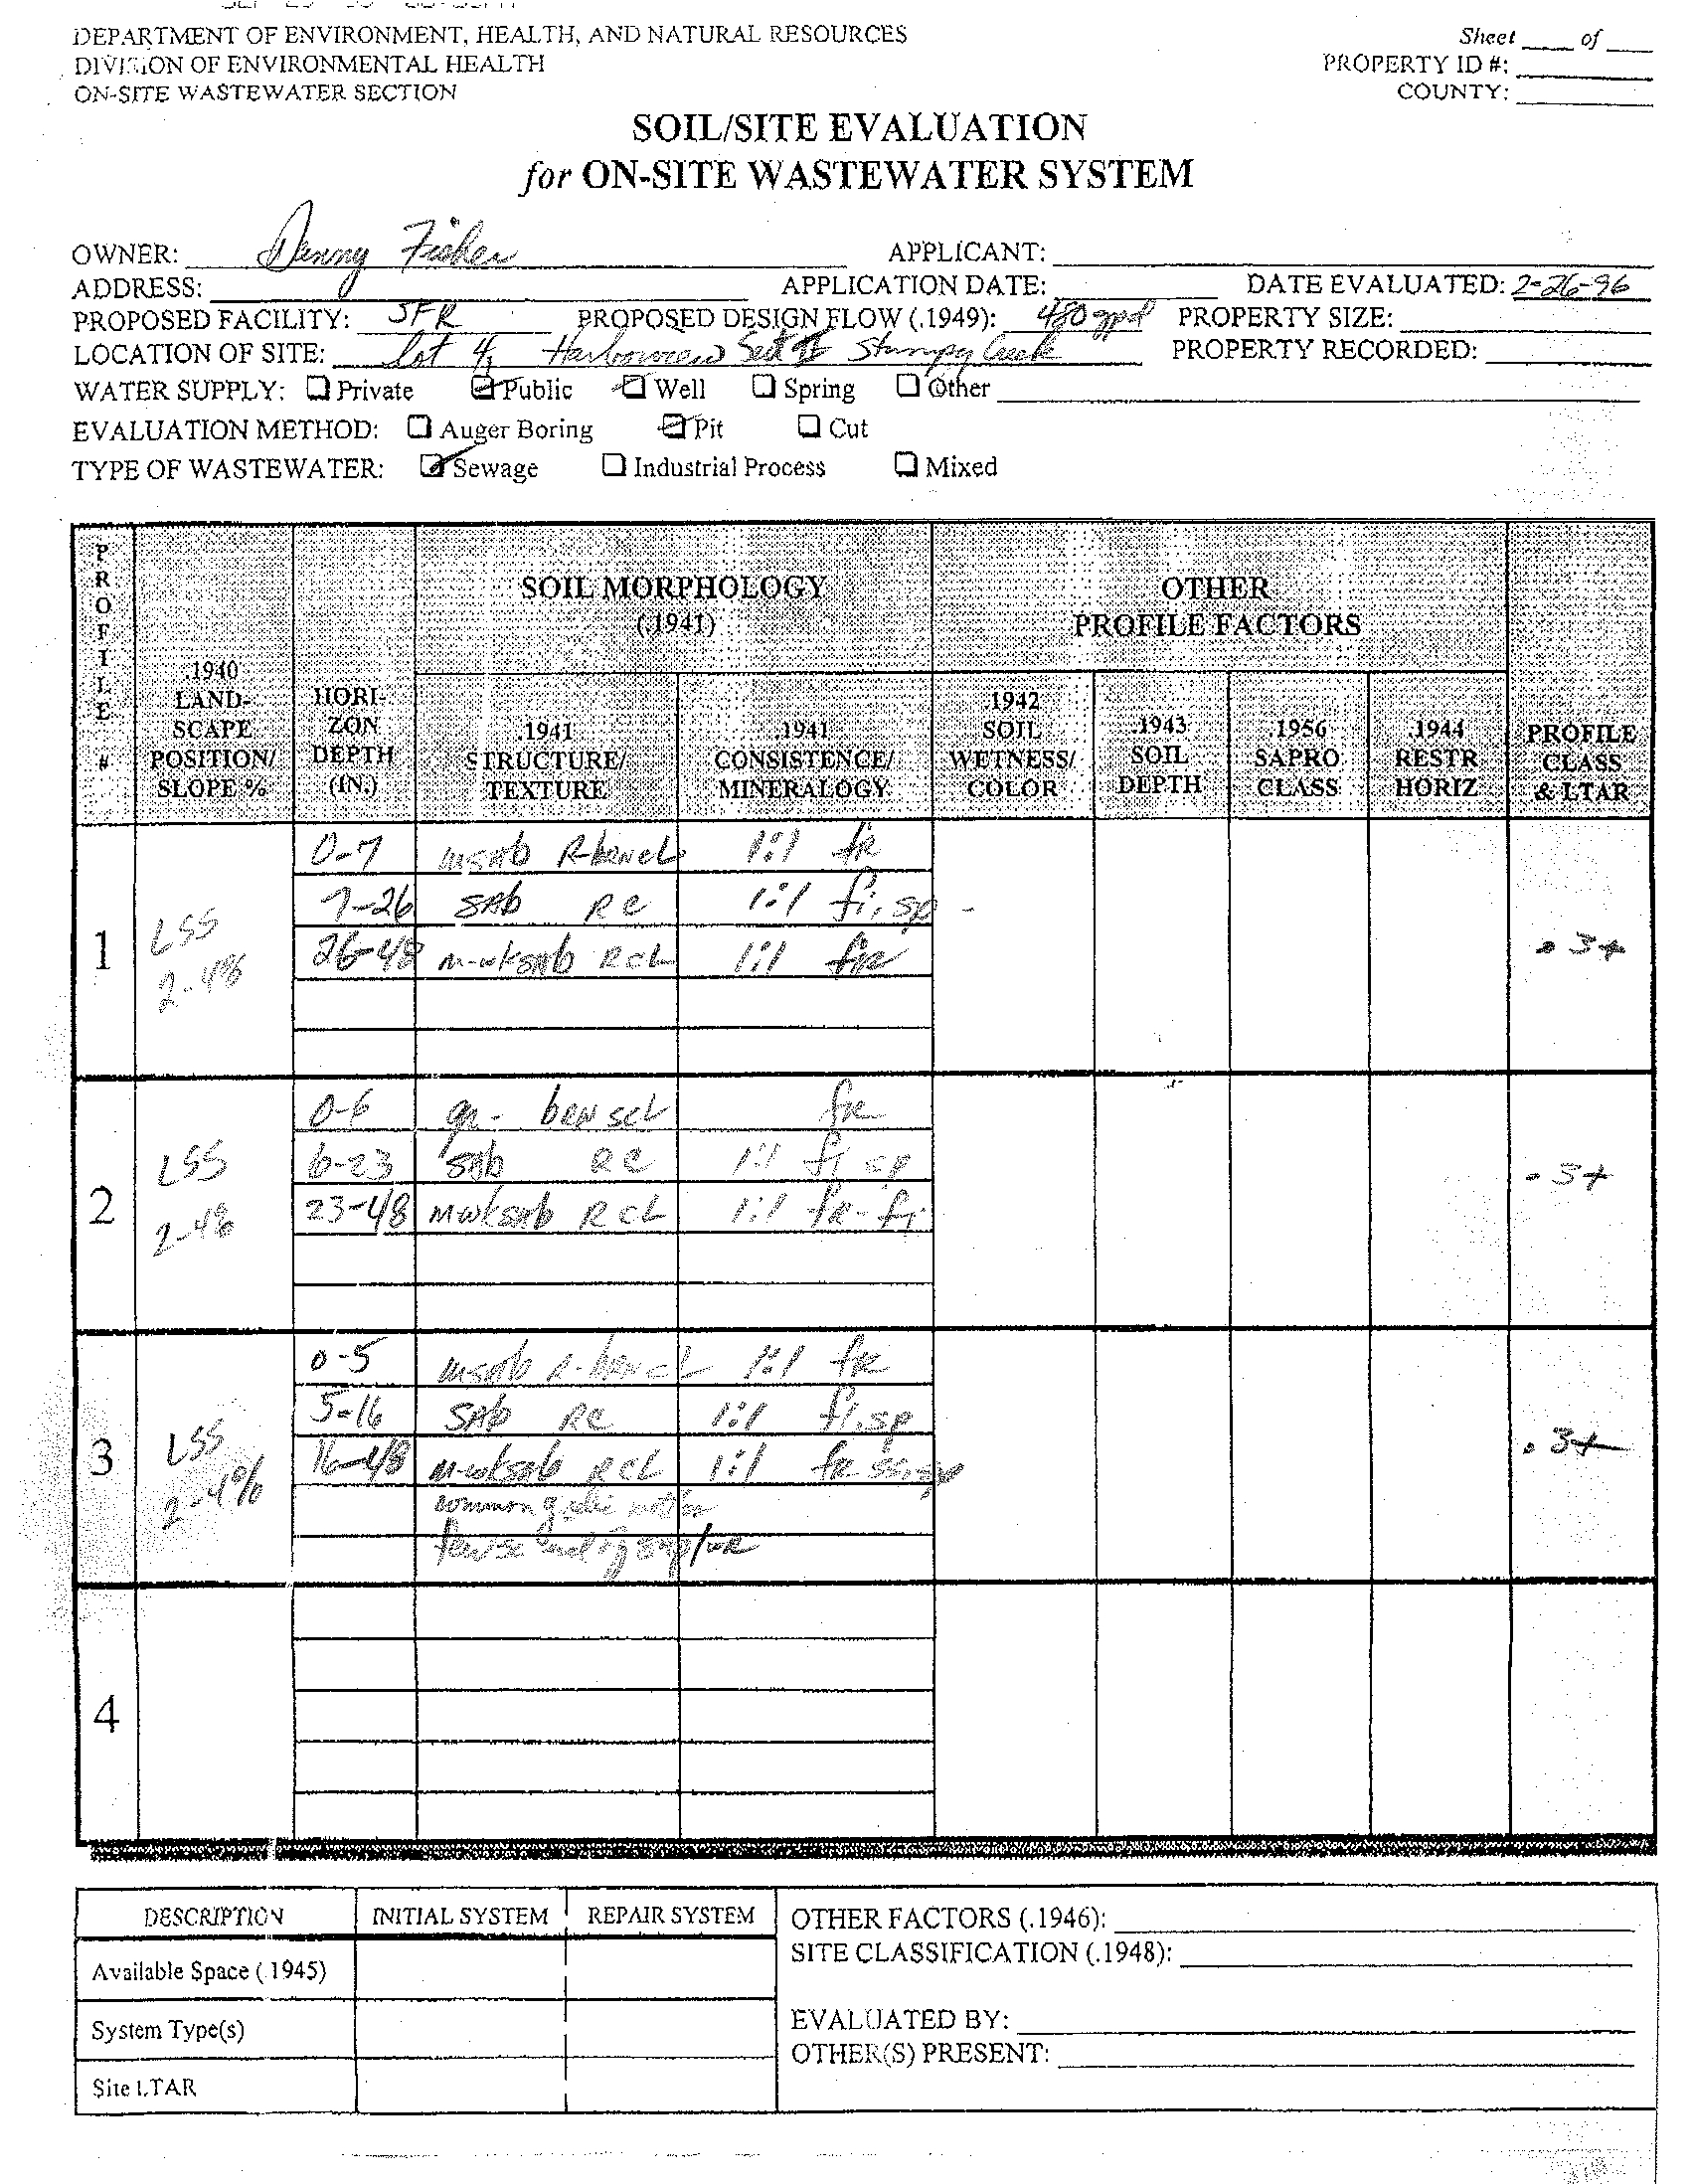 DEPARTMENT OF ENVIRONMENT, HEALTH, AND NATURAL RESOURCES
DIVISION OF ENVIRONMENTAL HEALTH
ON-SITE WASTEWATER SECTION
Sheet ____ of ____
PROPERTY ID #:
COUNTY:
SOIL/SITE EVALUATION
for ON-SITE WASTEWATER SYSTEM
OWNER: Danny Fisher APPLICANT:
ADDRESS: APPLICATION DATE: DATE EVALUATED: 2-26-96
PROPOSED FACILITY: SFR PROPOSED DESIGN FLOW (.1949): 480 gpd PROPERTY SIZE:
LOCATION OF SITE: Lot 4, Harborview Sect II Stumpy Creek PROPERTY RECORDED:
WATER SUPPLY: Private Public Well Spring Other
EVALUATION METHOD: Auger Boring Pit Cut
TYPE OF WASTEWATER: Sewage Industrial Process Mixed
PROFILE #
.1940 LAND-SCAPE POSITION/ SLOPE %
HORI-ZON DEPTH (IN.)
SOIL MORPHOLOGY (.1941)
.1941 STRUCTURE/ TEXTURE
.1941 CONSISTENCE/ MINERALOGY
OTHER PROFILE FACTORS
.1942 SOIL WETNESS/ COLOR
.1943 SOIL DEPTH
.1956 SAPRO CLASS
.1944 RESTR HORIZ
PROFILE CLASS & LTAR
1 LSS 2-4% .3+
0-7 msab R-brn cL 1:1 fr
7-26 sab RC 1:1 fi, sp -
26-48 m-wksab RCL 1:1 fr
2 LSS 2-4% .3+
0-6 gr- brn scL fr
6-23 sab RC 1:1 fi sp
23-48 mwksab RCL 1:1 fr-fi
3 LSS 2-4% .3+
0-5 msab R-brn cL 1:1 fr
5-16 sab RC 1:1 fi, sp
16-48 m-wksab RCL 1:1 fr ss, sp
common
4
DESCRIPTION INITIAL SYSTEM REPAIR SYSTEM
Available Space (.1945)
System Type(s)
Site LTAR
OTHER FACTORS (.1946):
SITE CLASSIFICATION (.1948):
EVALUATED BY:
OTHER(S) PRESENT: